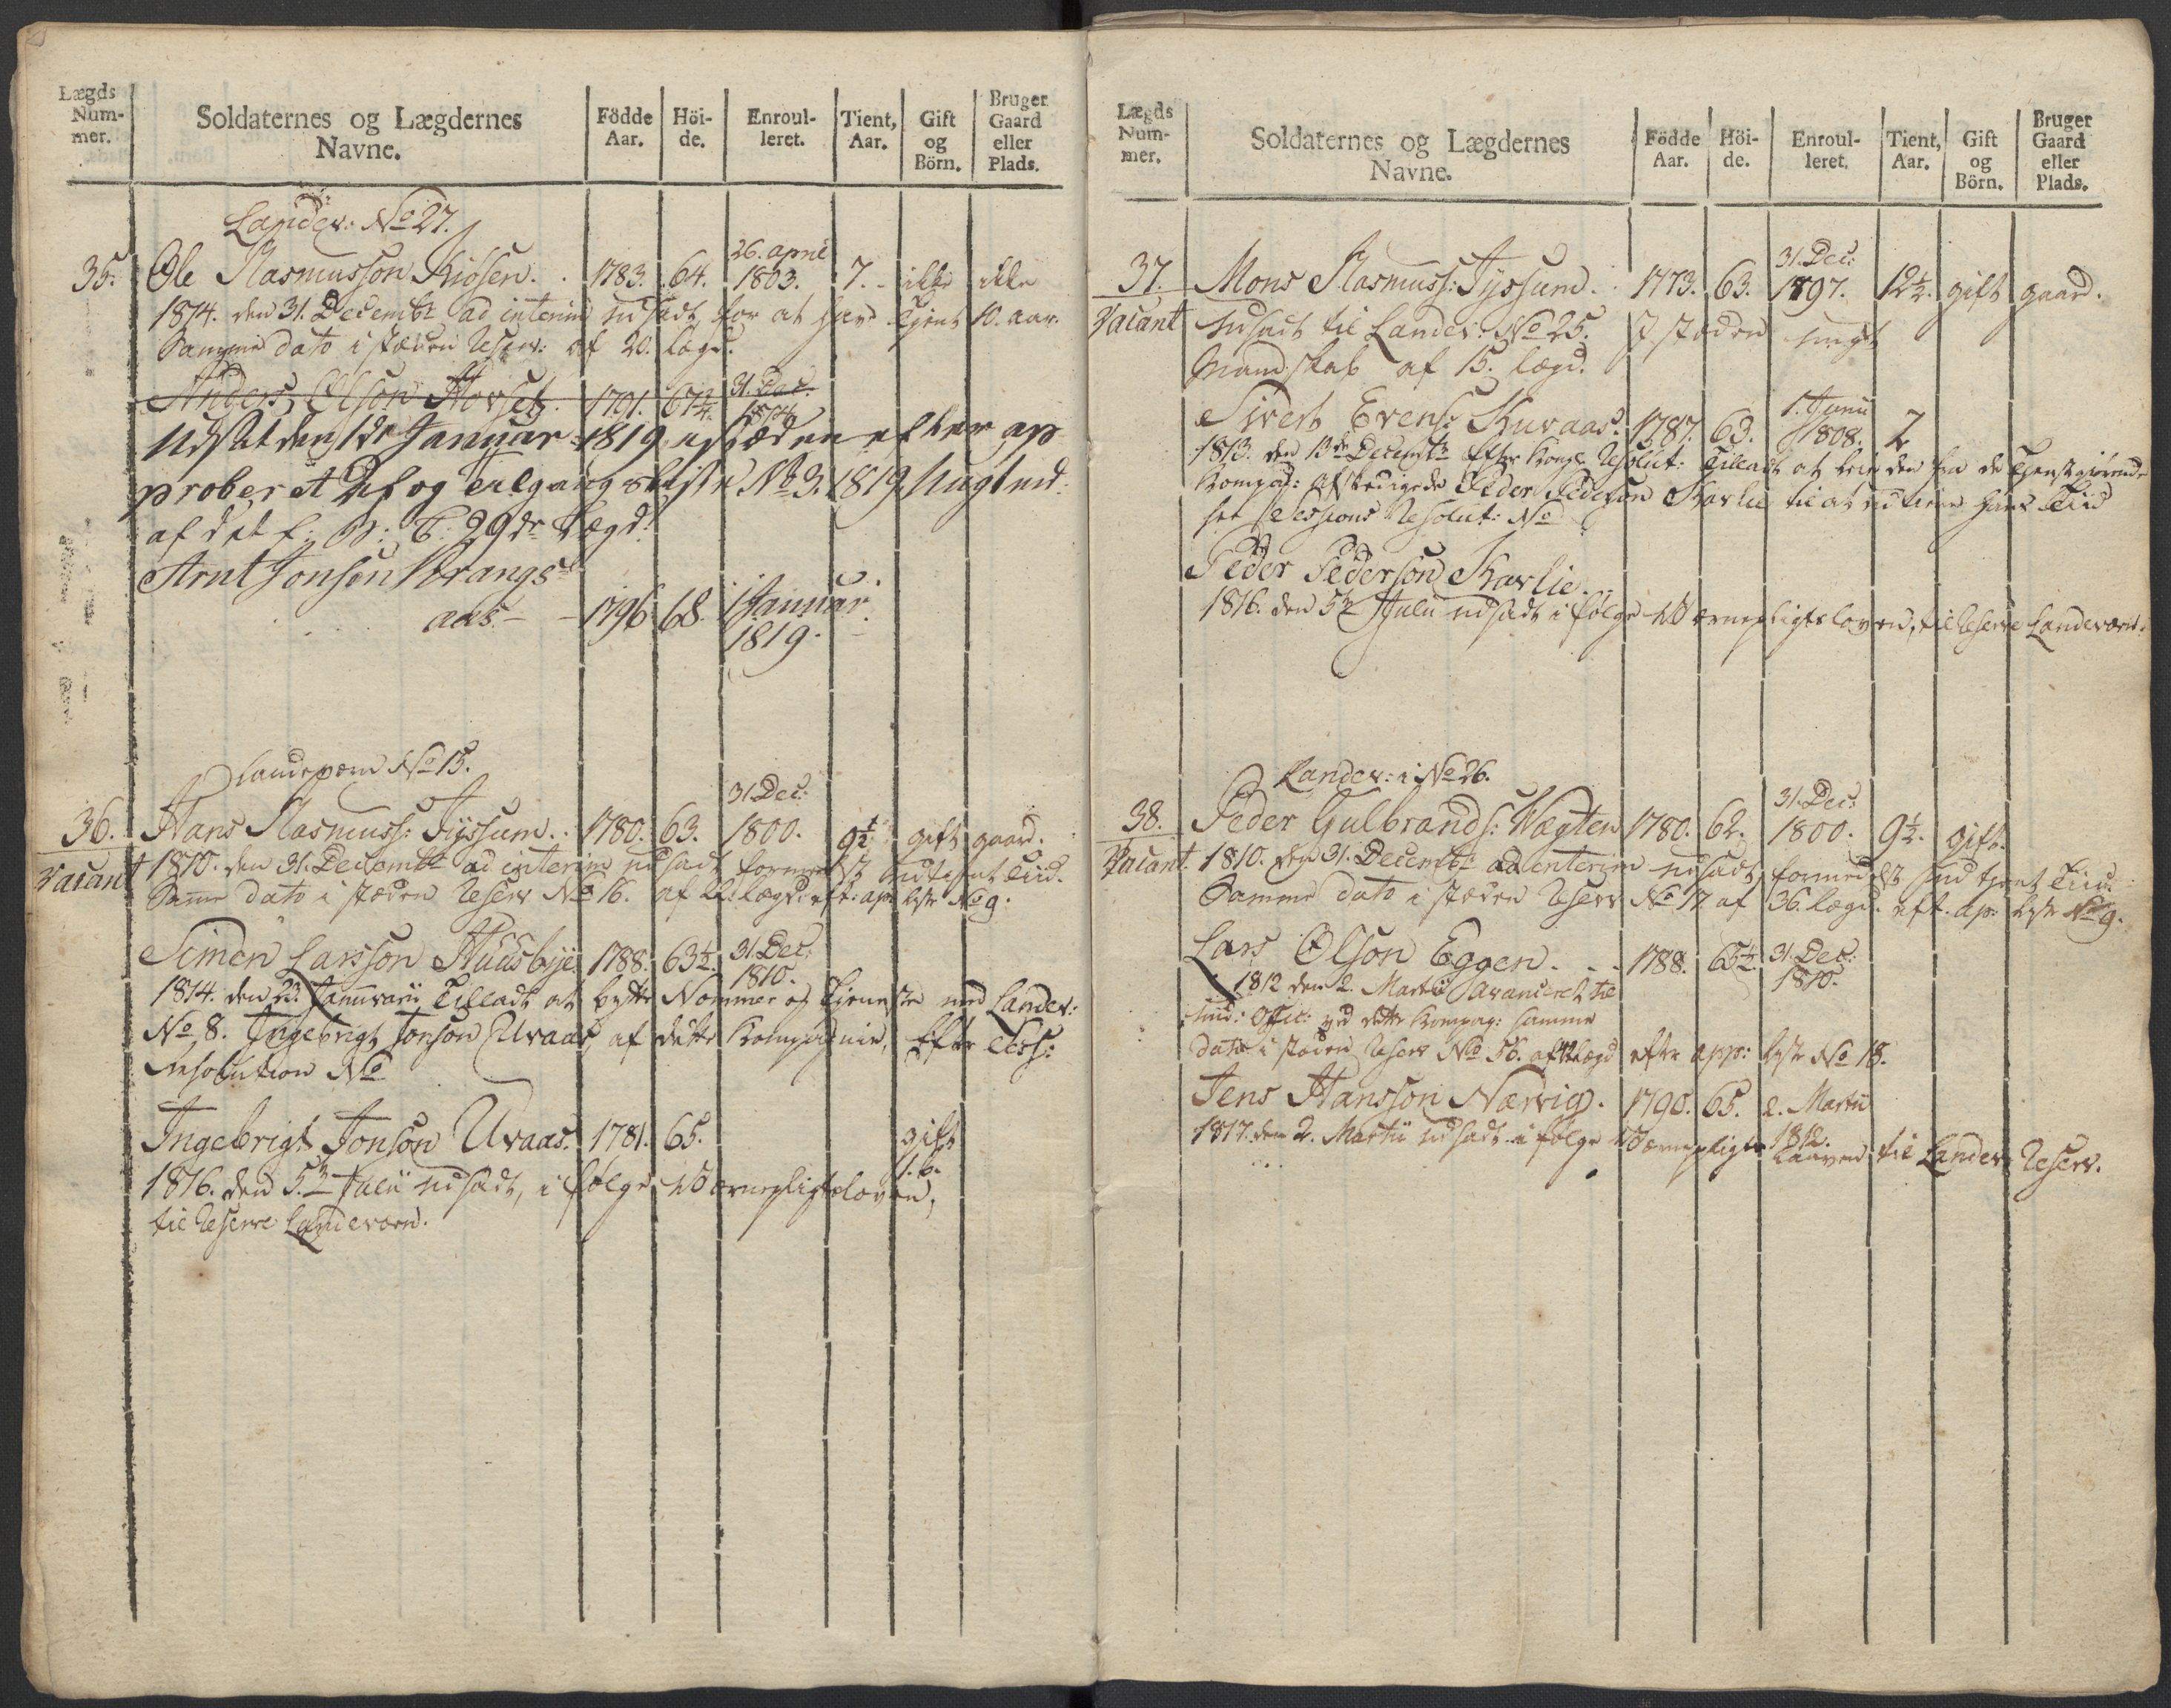 Lægds Num-mer. | Soldaternes og Lægdernes Navne. | Födde Aar. | Höi-de. | Enroul-leret. | Tient, Aar. | Gift og Börn. | Bruger Gaard eller Plads.
Landev: No 27.
35. Ole Rasmusson Kiösen. 1783. 64. 26. april 1803. 7. ikke ikke
1814. den 31. Decembr ad interim udsadt for at have tjent 10. aar.
Samme dato i stæden Reserv: af 20. lægd.
Anders Olson Horset. 1791. 67 3/4 31. Dec. 1814
Udsat den 1de Januar 1819 i stæden efter ap
proberet Af og Tilgangsliste No 3. 1819 Ungt md:
af dette C: 29de Lægd.
Arnt Jonson Vrangs
aas - - 1796 68. 1 Januar
1819.
Landeværn No 15.
36. Hans Rasmuss: Tyssum. 1780. 63. 31 Dec: 1800. 9 1/2 gift gaard.
Vacant 1810. den 31. Decembr ad interim udsadt formedelst udtjent Tiid.
Samme dato i stæden Reserv No 16. af 22 lægd eft: ap: liste No 9.
Simen Larsson Huusbye 1788. 63 1/2. 31 Dec: 1810.
1814. den 23. Januarii Tilladt at bytte Nommer og Tieneste med Landev:
No 8. Ingebrigt Jonson Uvaas, af dette Kompagnie, Efter Sess:
Resolution No
Ingebrigt Jonson Uvaas. 1781. 65. gift
1. b.
1816. den 5te Julii udsadt, i følge Værnepligtsloven,
til Reserve Landeværn.
Lægds Num-mer. | Soldaternes og Lægdernes Navne. | Födde Aar. | Höi-de. | Enroul-leret. | Tient, Aar. | Gift og Börn. | Bruger Gaard eller Plads.
37. Mons Rasmuss: Tyssum. 1773. 63. 31. Dec: 1797. 12 1/2. gift gaard.
Vacant udsadt til Landev: No 25. I stæden ungt
Mandskab af 15. lægd.
Sivert Evens: Kuvaas. 1787. 63. 1. Junii 1808. 2
1813. den 13de Decembr Efter Kongl: Resolut: Tilladt at leie den fra de Tjenstgiörende
Kompag: afskedigede Peder Pederson Skarlie til at udtiene hans Tiid
see Sessions Resolut: No
Peder Pederson Skarlie.
1816. den 5te Julii udsadt i følge Værnepligtsloven, til Reserve Landeværn.
Landev: No 26.
38. Peder Gulbrands: Vægten 1780. 62. 31. Dec: 1800. 9 1/2. gift.
Vacant. 1810. den 31. Decembr ad interim udsadt formedelst udtjent Tiid.
Samme dato i stæden Reserv No 17 af 36. lægd. eft. ap: liste No 9.
Lars Olson Eggen. 1788. 65 1/2. 31 Dec: 1810.
1812 den 2. Martii avanceret til
Und: Offic: ved dette Kompag: samme
dato i stæden Reserv No 56. af lægd efter app: liste No 18.
Jens Hansson Nærvig. 1790. 65. 2. Martii
1812.
1817. den 2. Martii udsadt i følge Værnepligts Laaven til Landev Reserv.